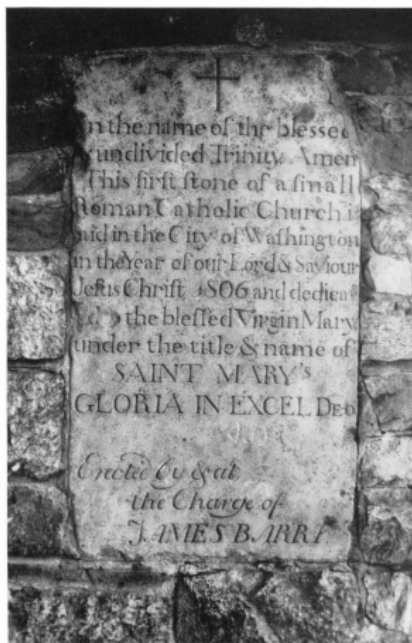 In the name of the blessed
& undivided Trinity Amen
This first stone of a small
Roman Catholic Church is
laid in the City of Washington
in the Year of our Lord & Saviour
Jesus Christ 1806 and dedica
to the blessed Virgin Mary
under the title & name of
SAINT MARY's
GLORIA IN EXCEL DEO
Erected by & at
the Charge of
JAMES BARRY